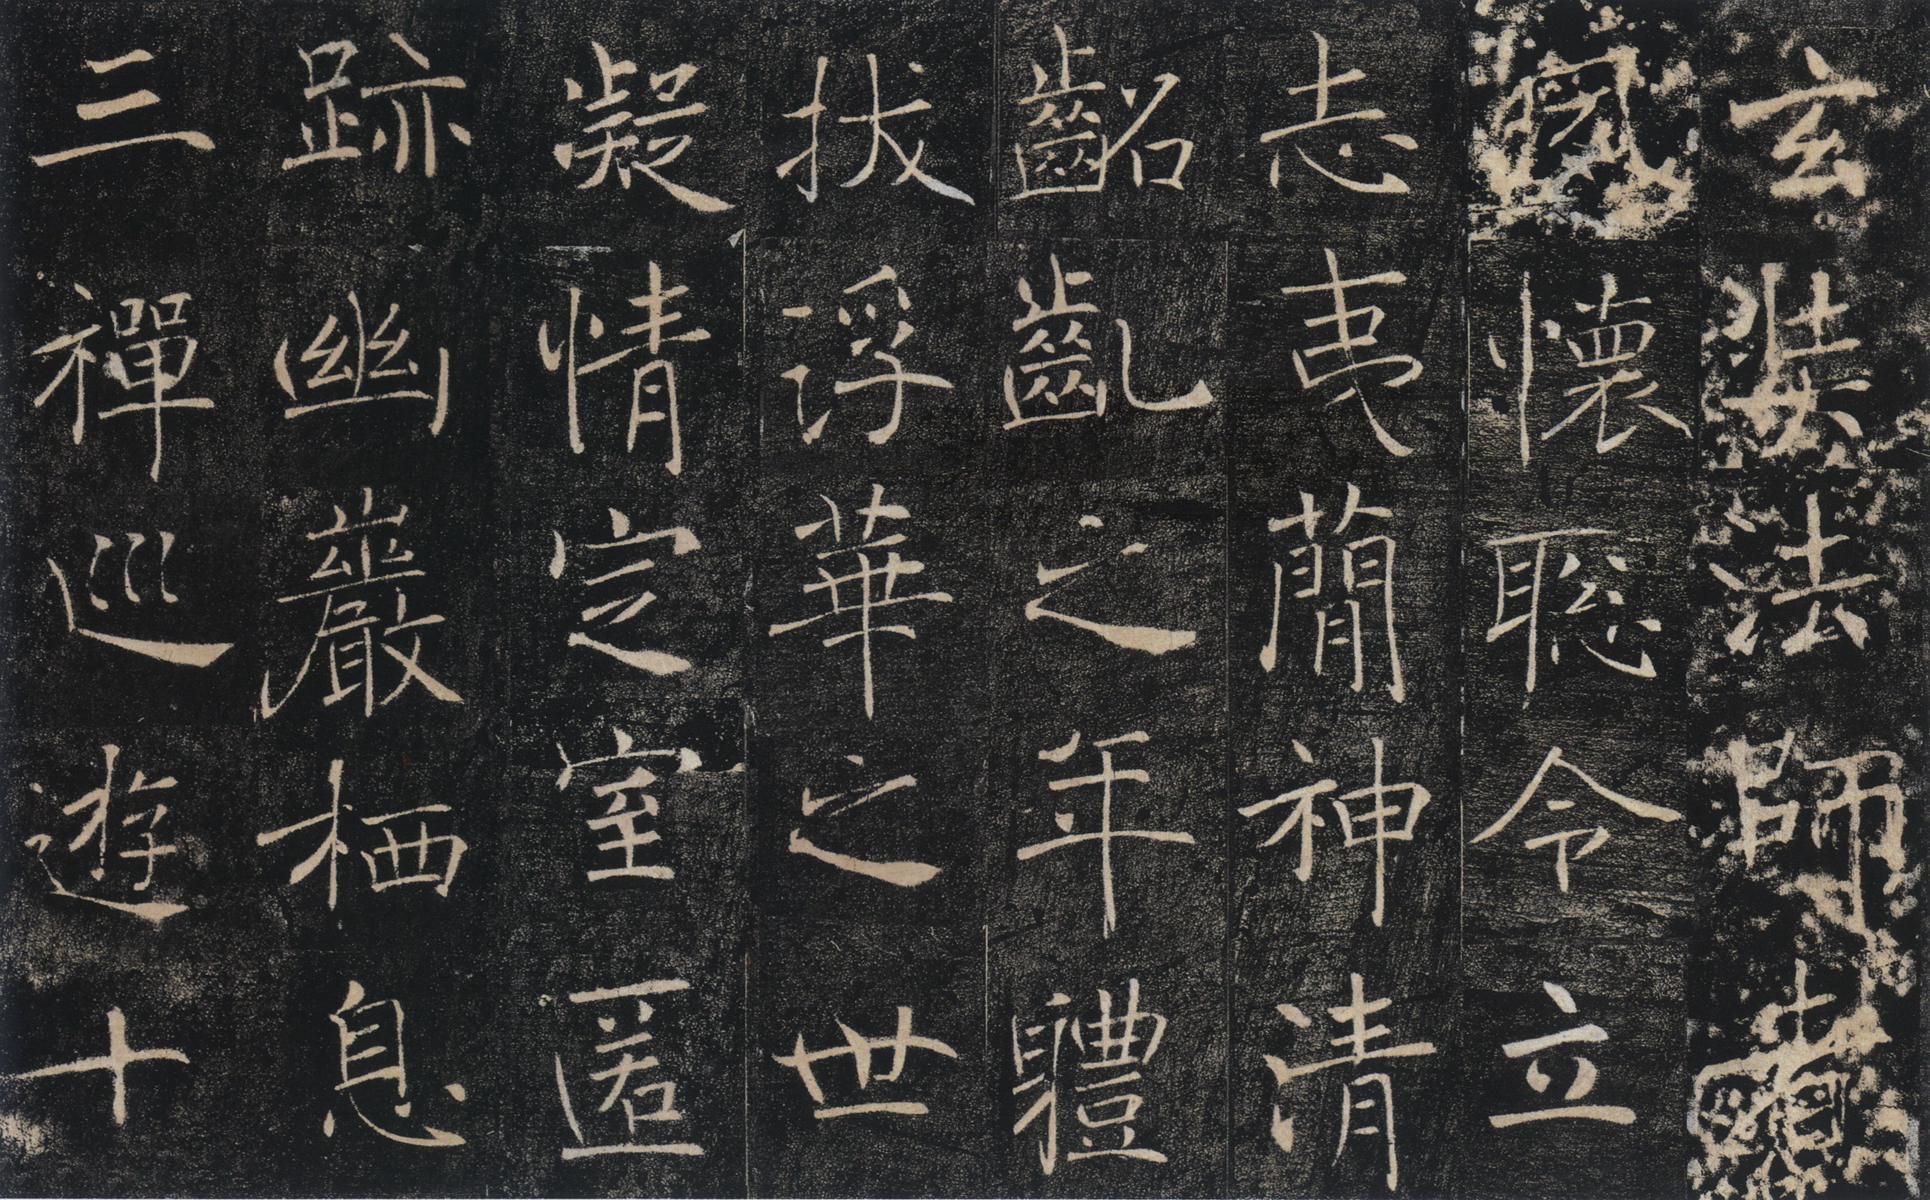 玄奘法師者
夙懷聡令立
志夷蕳神清
齠齔之年體
拔浮華之世
凝情定室匿
跡幽巖栖息
三禪巡遊十